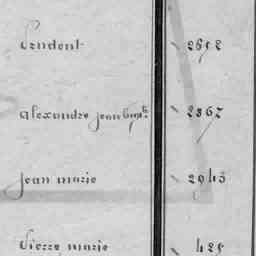 Prudent 2852
Alexandre jean bapt. 2867
jean marie 2943
Pierre marie 425